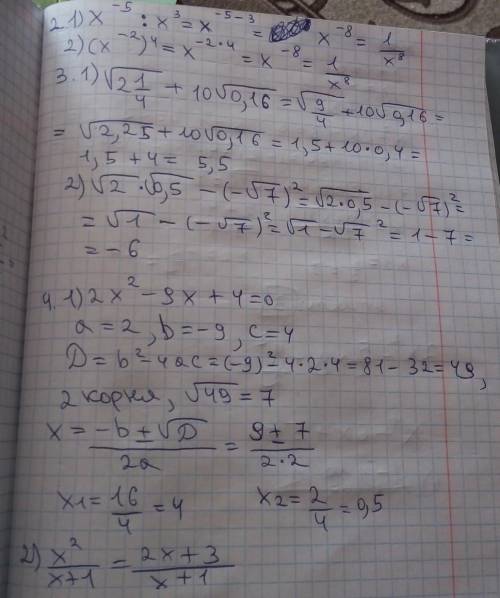 2.1) x⁻⁵ : x³ = x⁻⁵⁻³ = x⁻⁸ = 1/x⁸
2) (x⁻²)⁴ = x⁻²·⁴ = x⁻⁸ = 1/x⁸
3.1) √(2 1/4) + 10√0,16 = √(9/4) + 10√0,16 =
= √2,25 + 10√0,16 = 1,5 + 10·0,4 =
1,5 + 4 = 5,5
2) √2 · √0,5 − (−√7)² = √2·0,5 − (−√7)² =
= √1 − (−√7)² = √1 − √7² = 1 − 7 =
= −6
4.1) 2x² − 9x + 4 = 0
a = 2, b = −9, c = 4
D = b² − 4ac = (−9)² − 4·2·4 = 81 − 32 = 49,
2 корня, √49 = 7
x = (−b ± √D)/2a = (9 ± 7)/2·2
x1 = 16/4 = 4 x2 = 2/4 = 0,5
2) x²/x+1 = 2x+3/x+1